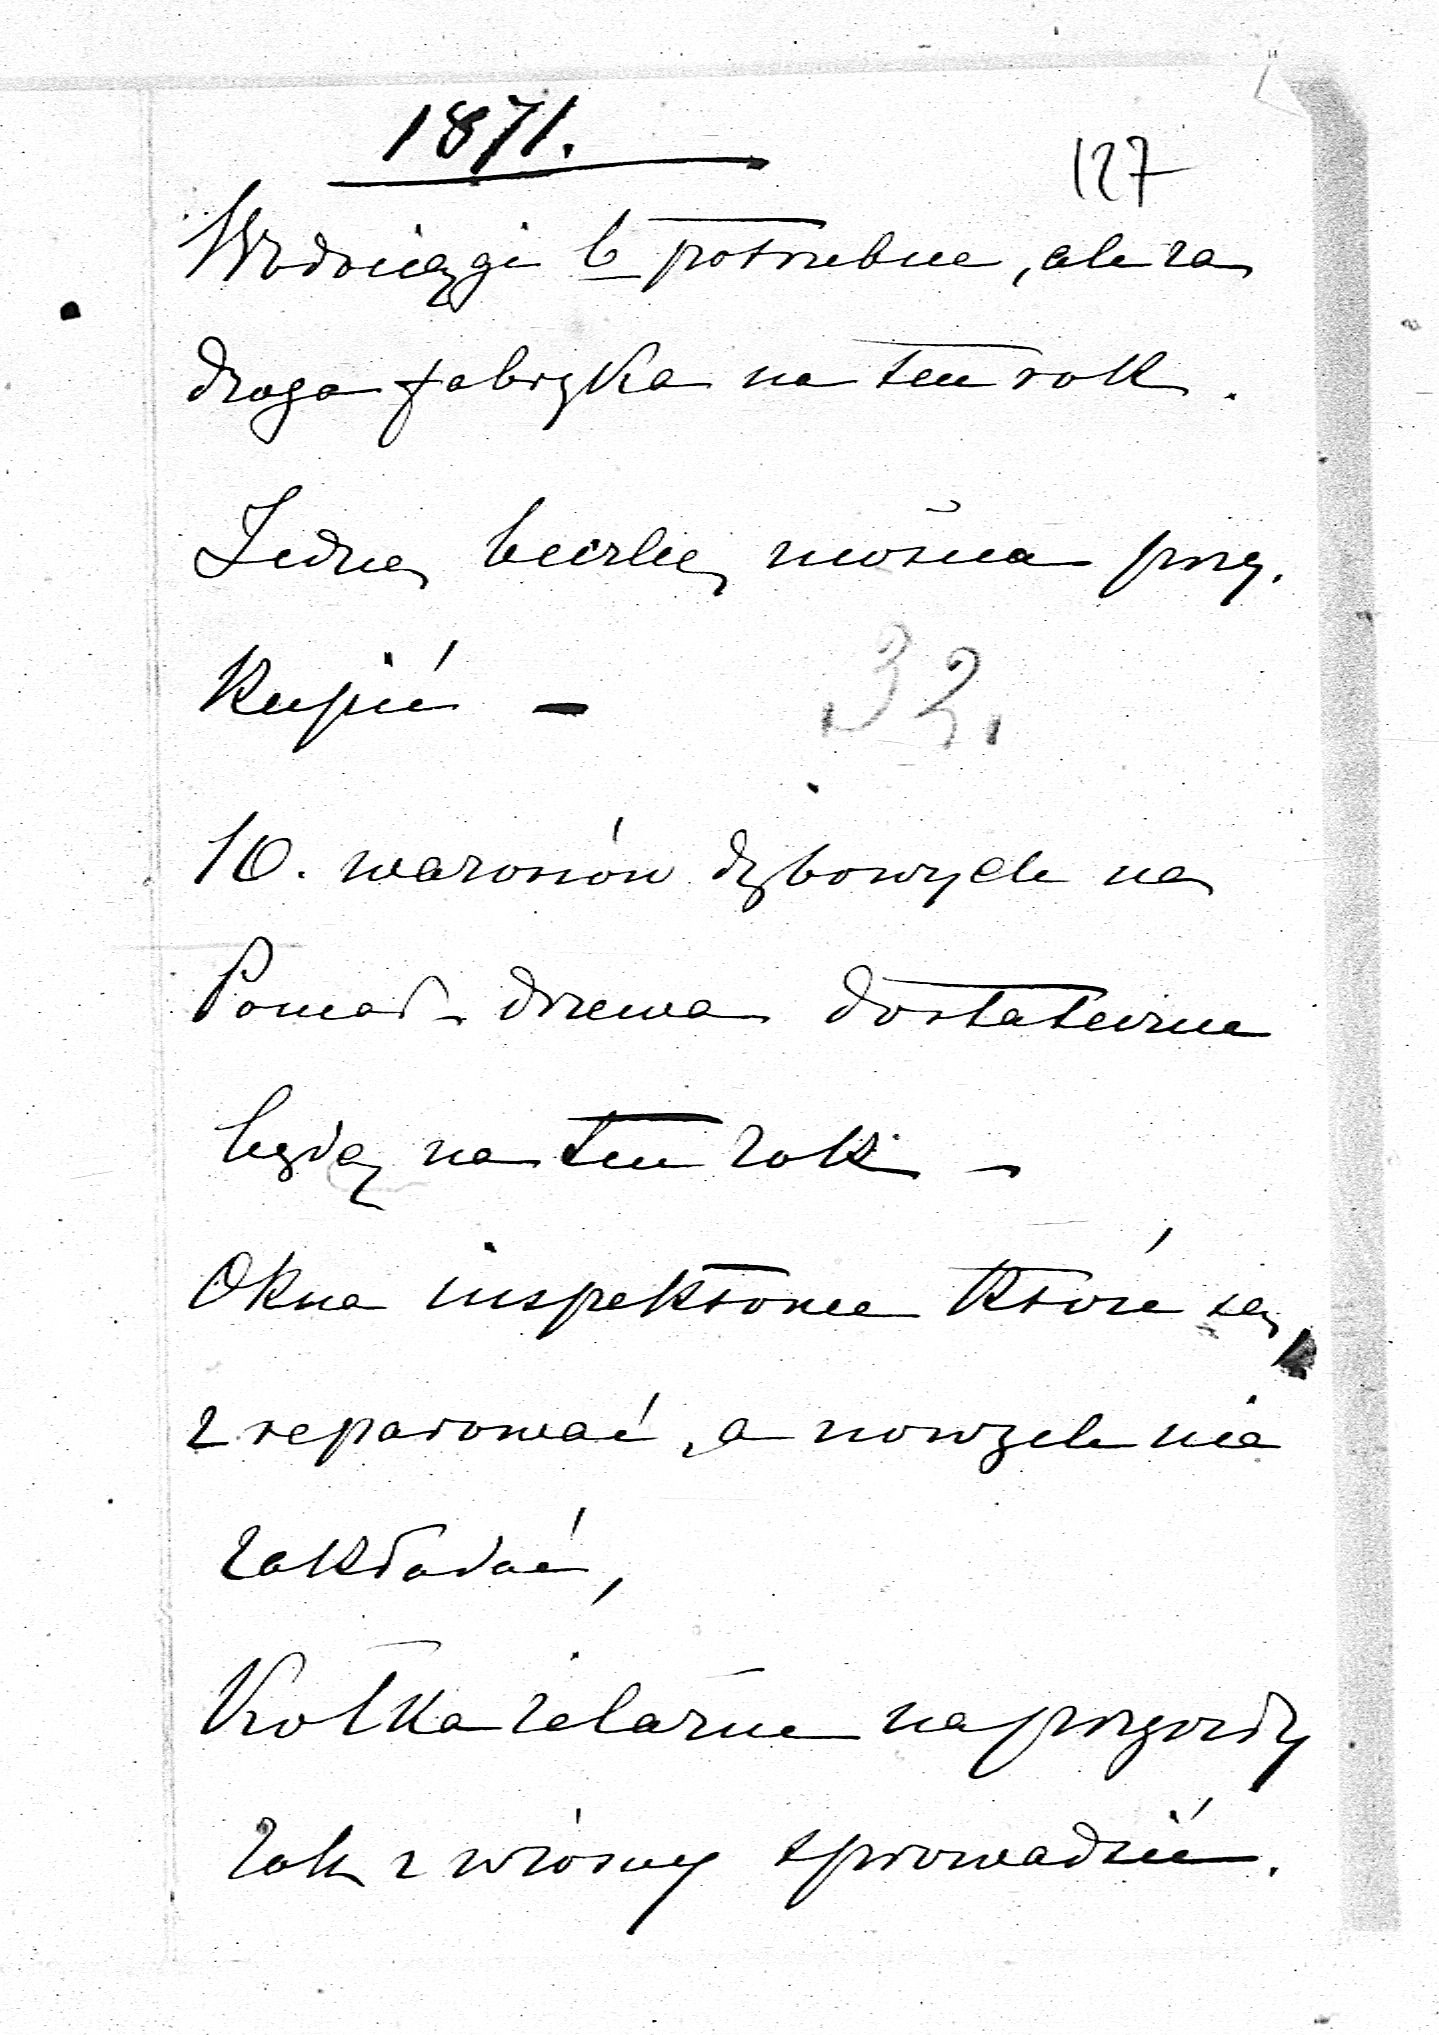 1871.
127
Wodociągi b potrzebne, ale za
droga fabryka na ten rok.
Jedną beczkę można przy.
kupić –
32.
10. wazonów dębowych na
Pomar- drzewa dostateczne
będą na ten rok –
Okna inspektowe które są
zreparować, a nowych nie
zakładać,
Kółka żelazne na przyszły
rok z wiosny sprowadzić.